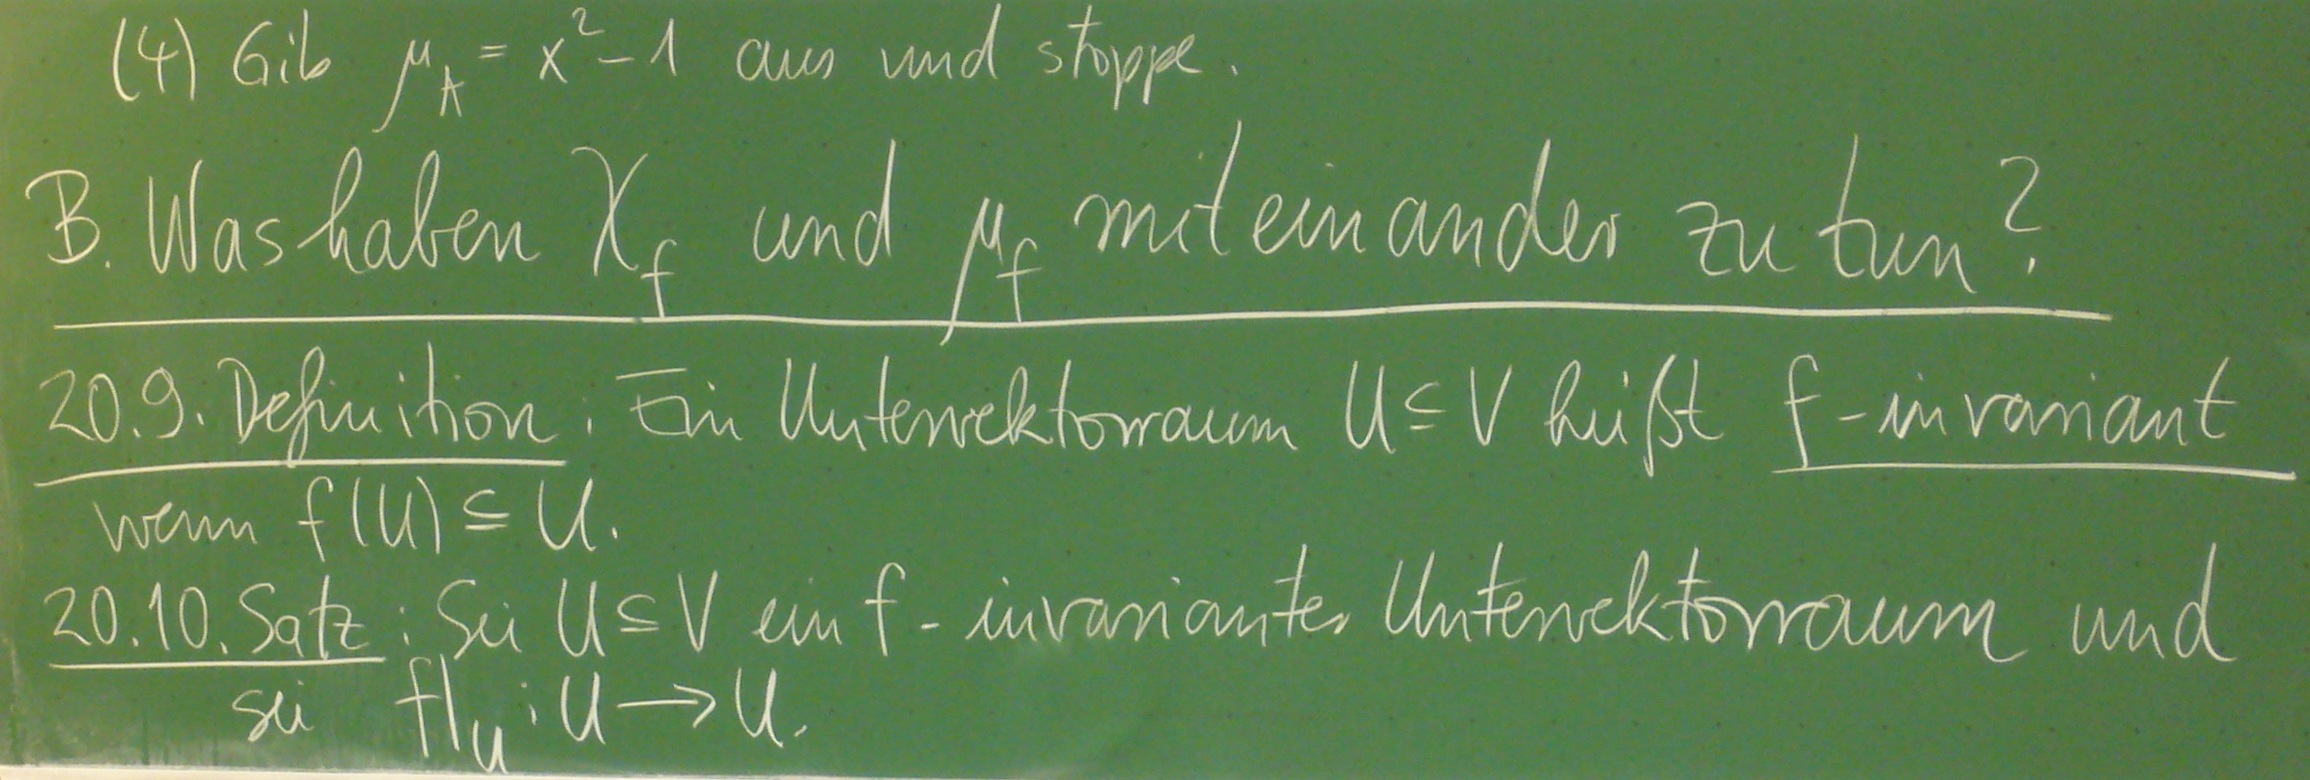 (4) Gib μ_A = x² - 1 aus und stoppe.
B. Was haben χ_f und μ_f miteinander zu tun?
20.9. Definition: Ein Untervektorraum U ⊆ V heißt f-invariant
wenn f(U) ⊆ U.
20.10. Satz: Sei U ⊆ V ein f-invarianter Untervektorraum und
sei f|_U : U → U.